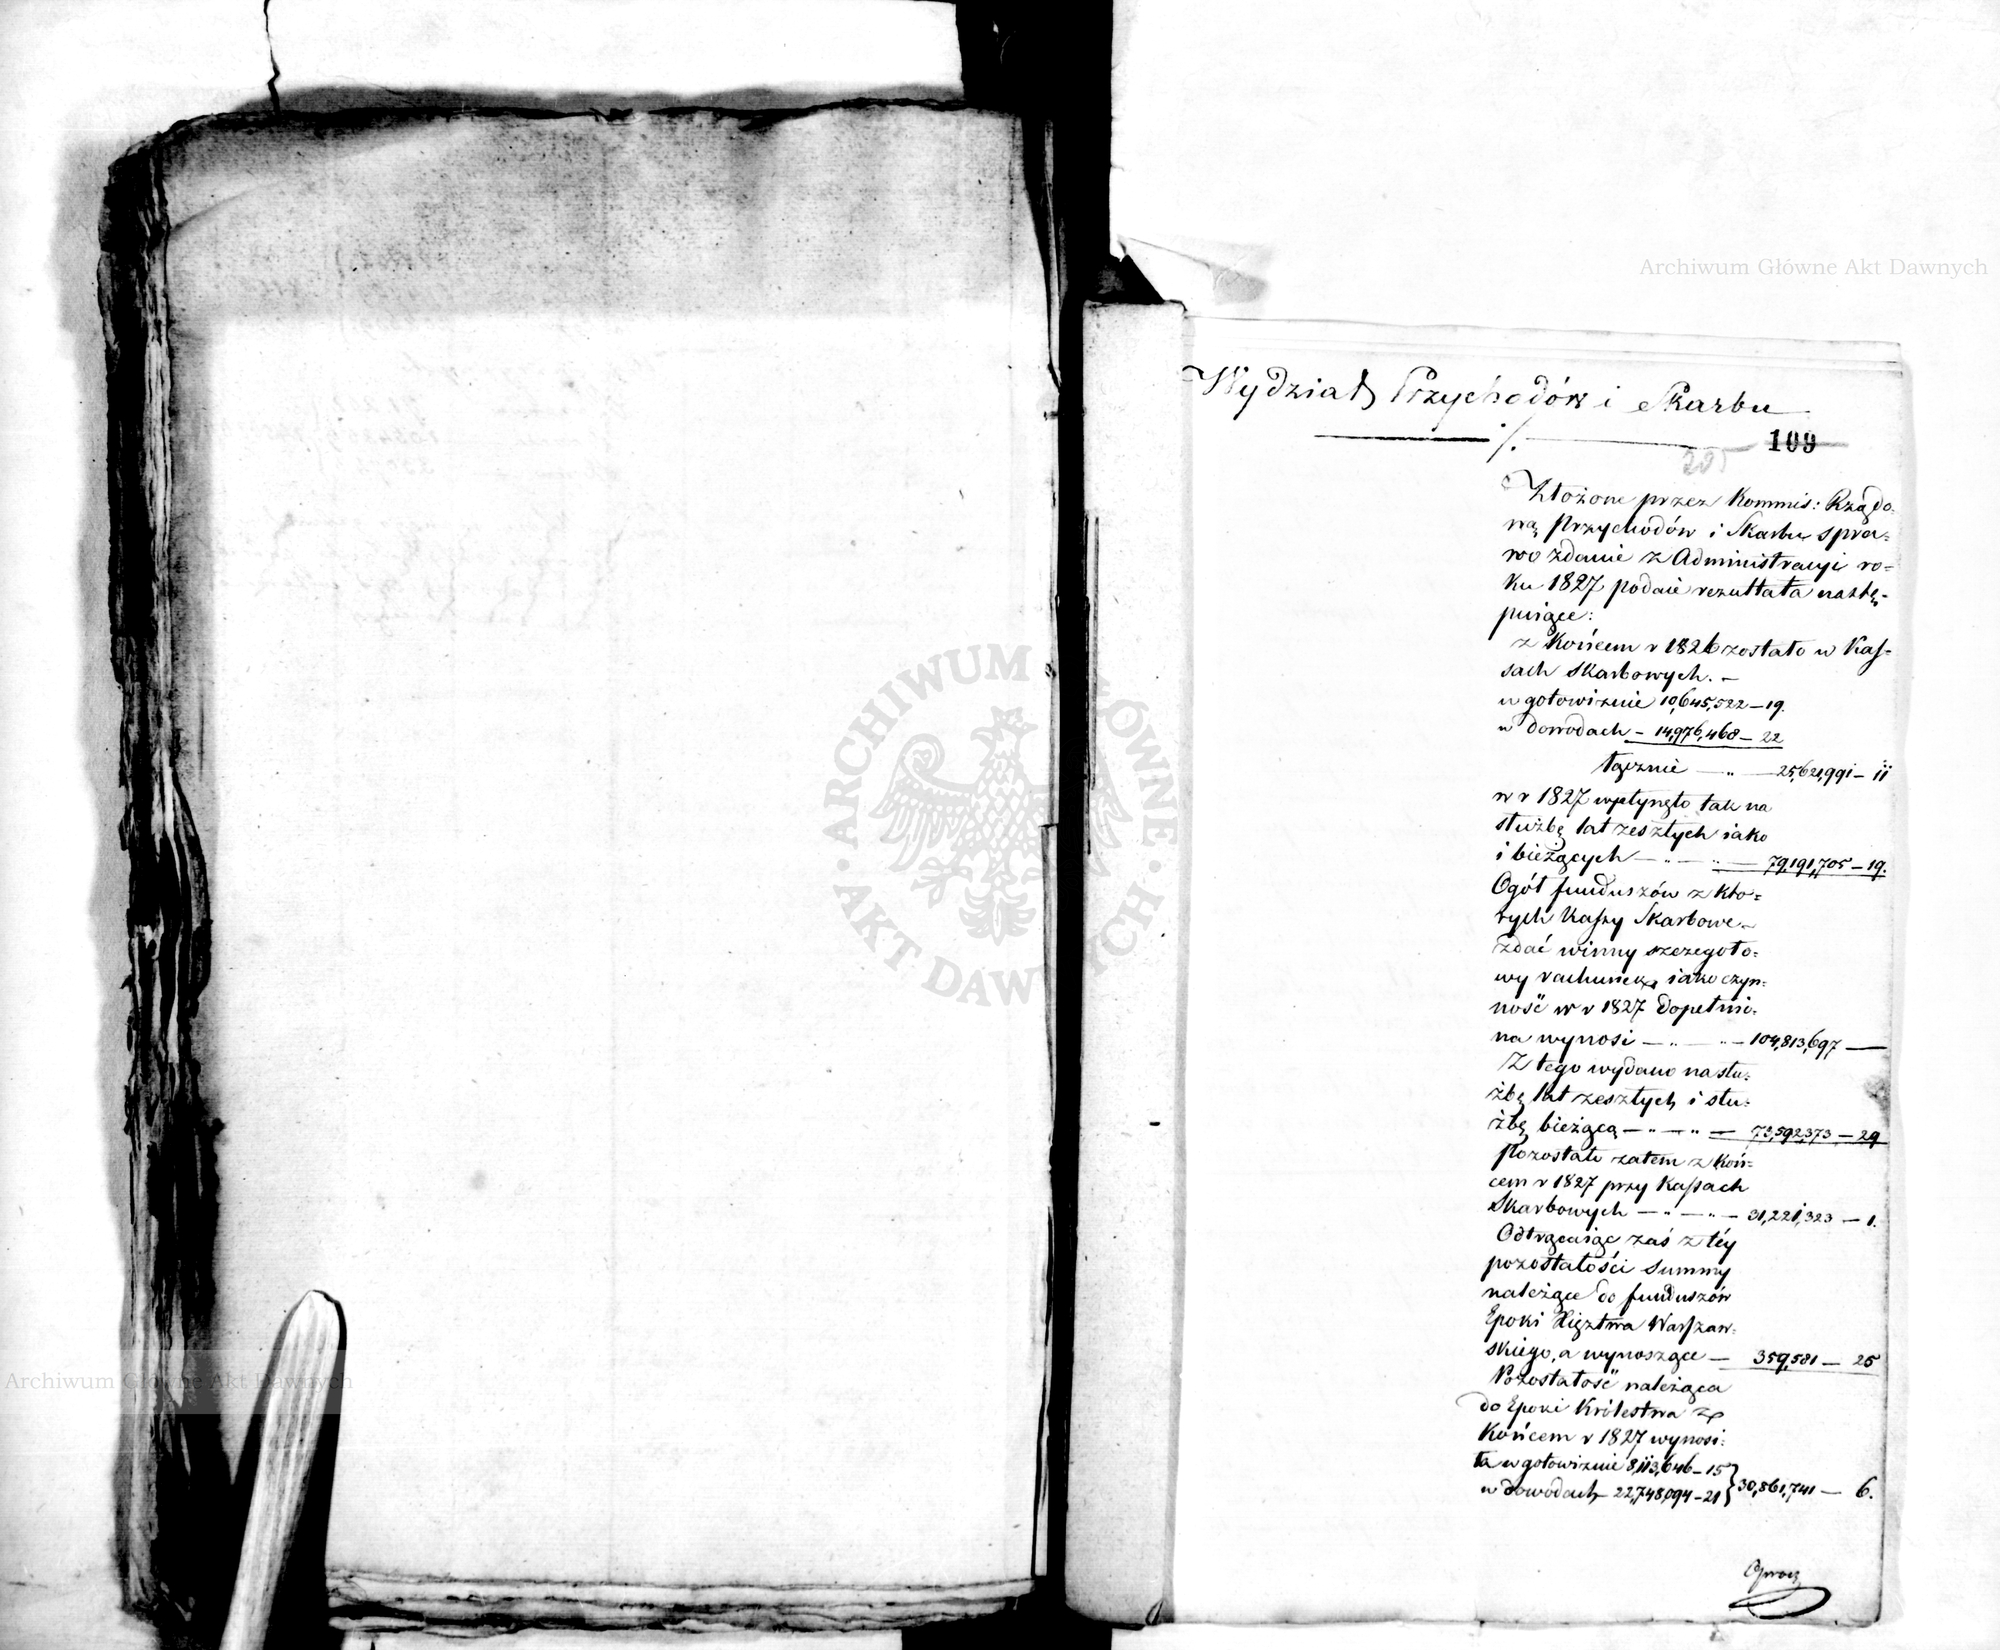 Archiwum Główne Akt Dawnych
Wydział Przychodów i Skarbu
109
205
Złożone przez Kommis: Rządo-
wą Przychodów i Skarbu spra-
wozdanie z Administracyi ro-
ku 1827 podaie rezultata nastę-
puiące:
z Końcem r 1826 zostało w Kas-
sach Skarbowych. –
w gotowiznie 10,645,522 – 19.
w dowodach – 14,976,468 – 22
łącznie — „ — 25,621,991 – 11
w r 1827 wpłynęło tak na
służbę lat zeszłych iako
i bieżących — „ — „ — 79,191,705 – 19.
Ogół funduszów z któ-
rych Kassy Skarbowe
zdać winny szczegóło-
wy rachunek, iako czyn-
ność w r 1827 dopełnio-
na wynosi — „ — „ — 104,813,697 —
Z tego wydano na słu-
żbę lat zeszłych i słu-
żbę bieżącą — „ — „ — 73,592,373 – 29
Pozostało zatem z Koń-
cem r 1827 przy Kassach
Skarbowych — „ — „ — 31,221,323 – 1.
Odtrąciaiąc zaś z téy
pozostałości Summy
należące do funduszów
Epoki Xięztwa Warszaw-
skiego, a wynoszące — 359,581 – 25
Pozostałość należąca
do Epoki Królestwa z
Końcem r 1827 wynosi-
ła w gotowiznie 8,113,646 – 15
w dowodach 22,748,094 – 21 } 30,861,741 – 6.
Oprocz
ARCHIWUM GŁÓWNE · AKT DAWNYCH ·
Archiwum Główne Akt Dawnych